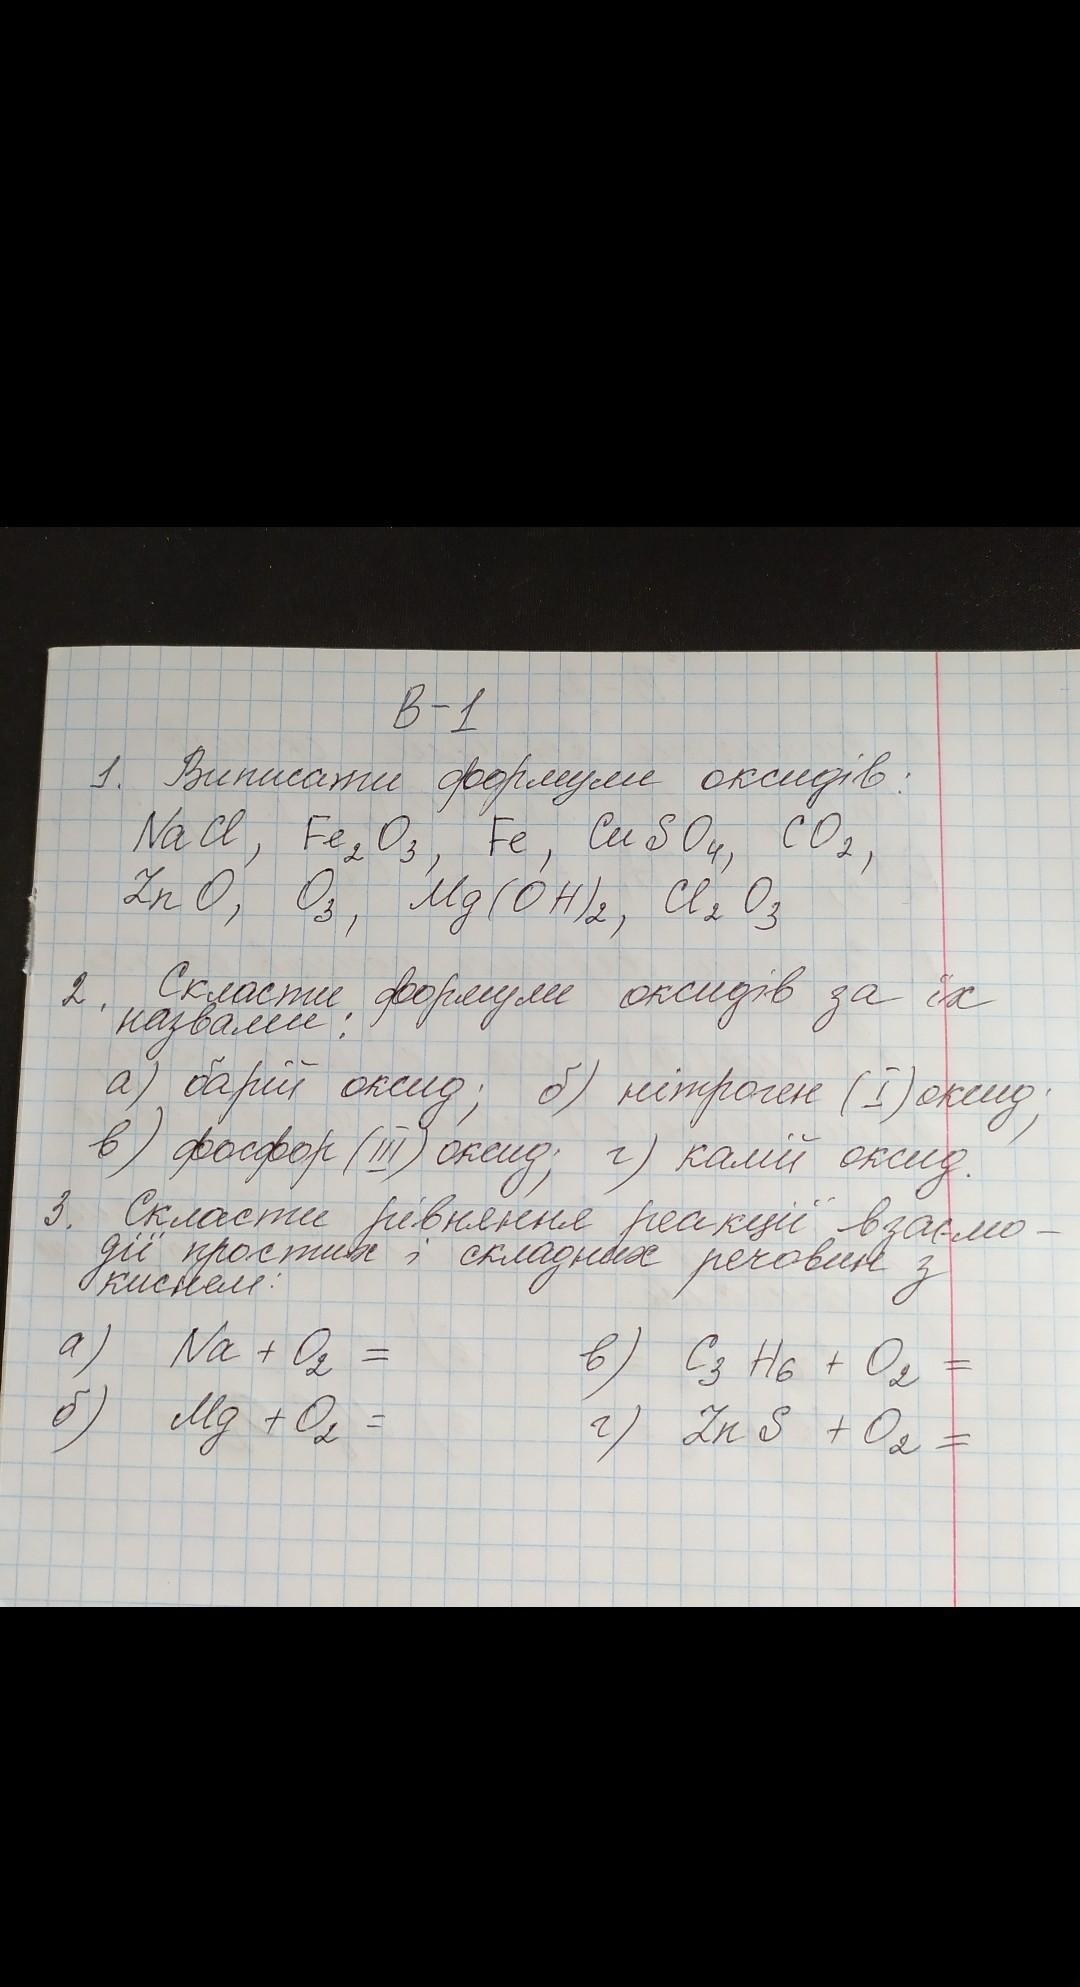 В-1
1. Виписати формули оксидів:
NaCl, Fe₂O₃, Fe, CuSO₄, CO₂,
ZnO, O₃, Mg(OH)₂, Cl₂O₃
2. Скласти формули оксидів за їх
назвами:
а) барій оксид; б) нітроген (I) оксид;
в) фосфор (III) оксид; г) калій оксид.
3. Скласти рівняння реакції взаємо-
дії простих і складних речовин з
киснем:
а) Na + O₂ = в) C₃H₆ + O₂ =
б) Mg + O₂ = г) ZnS + O₂ =